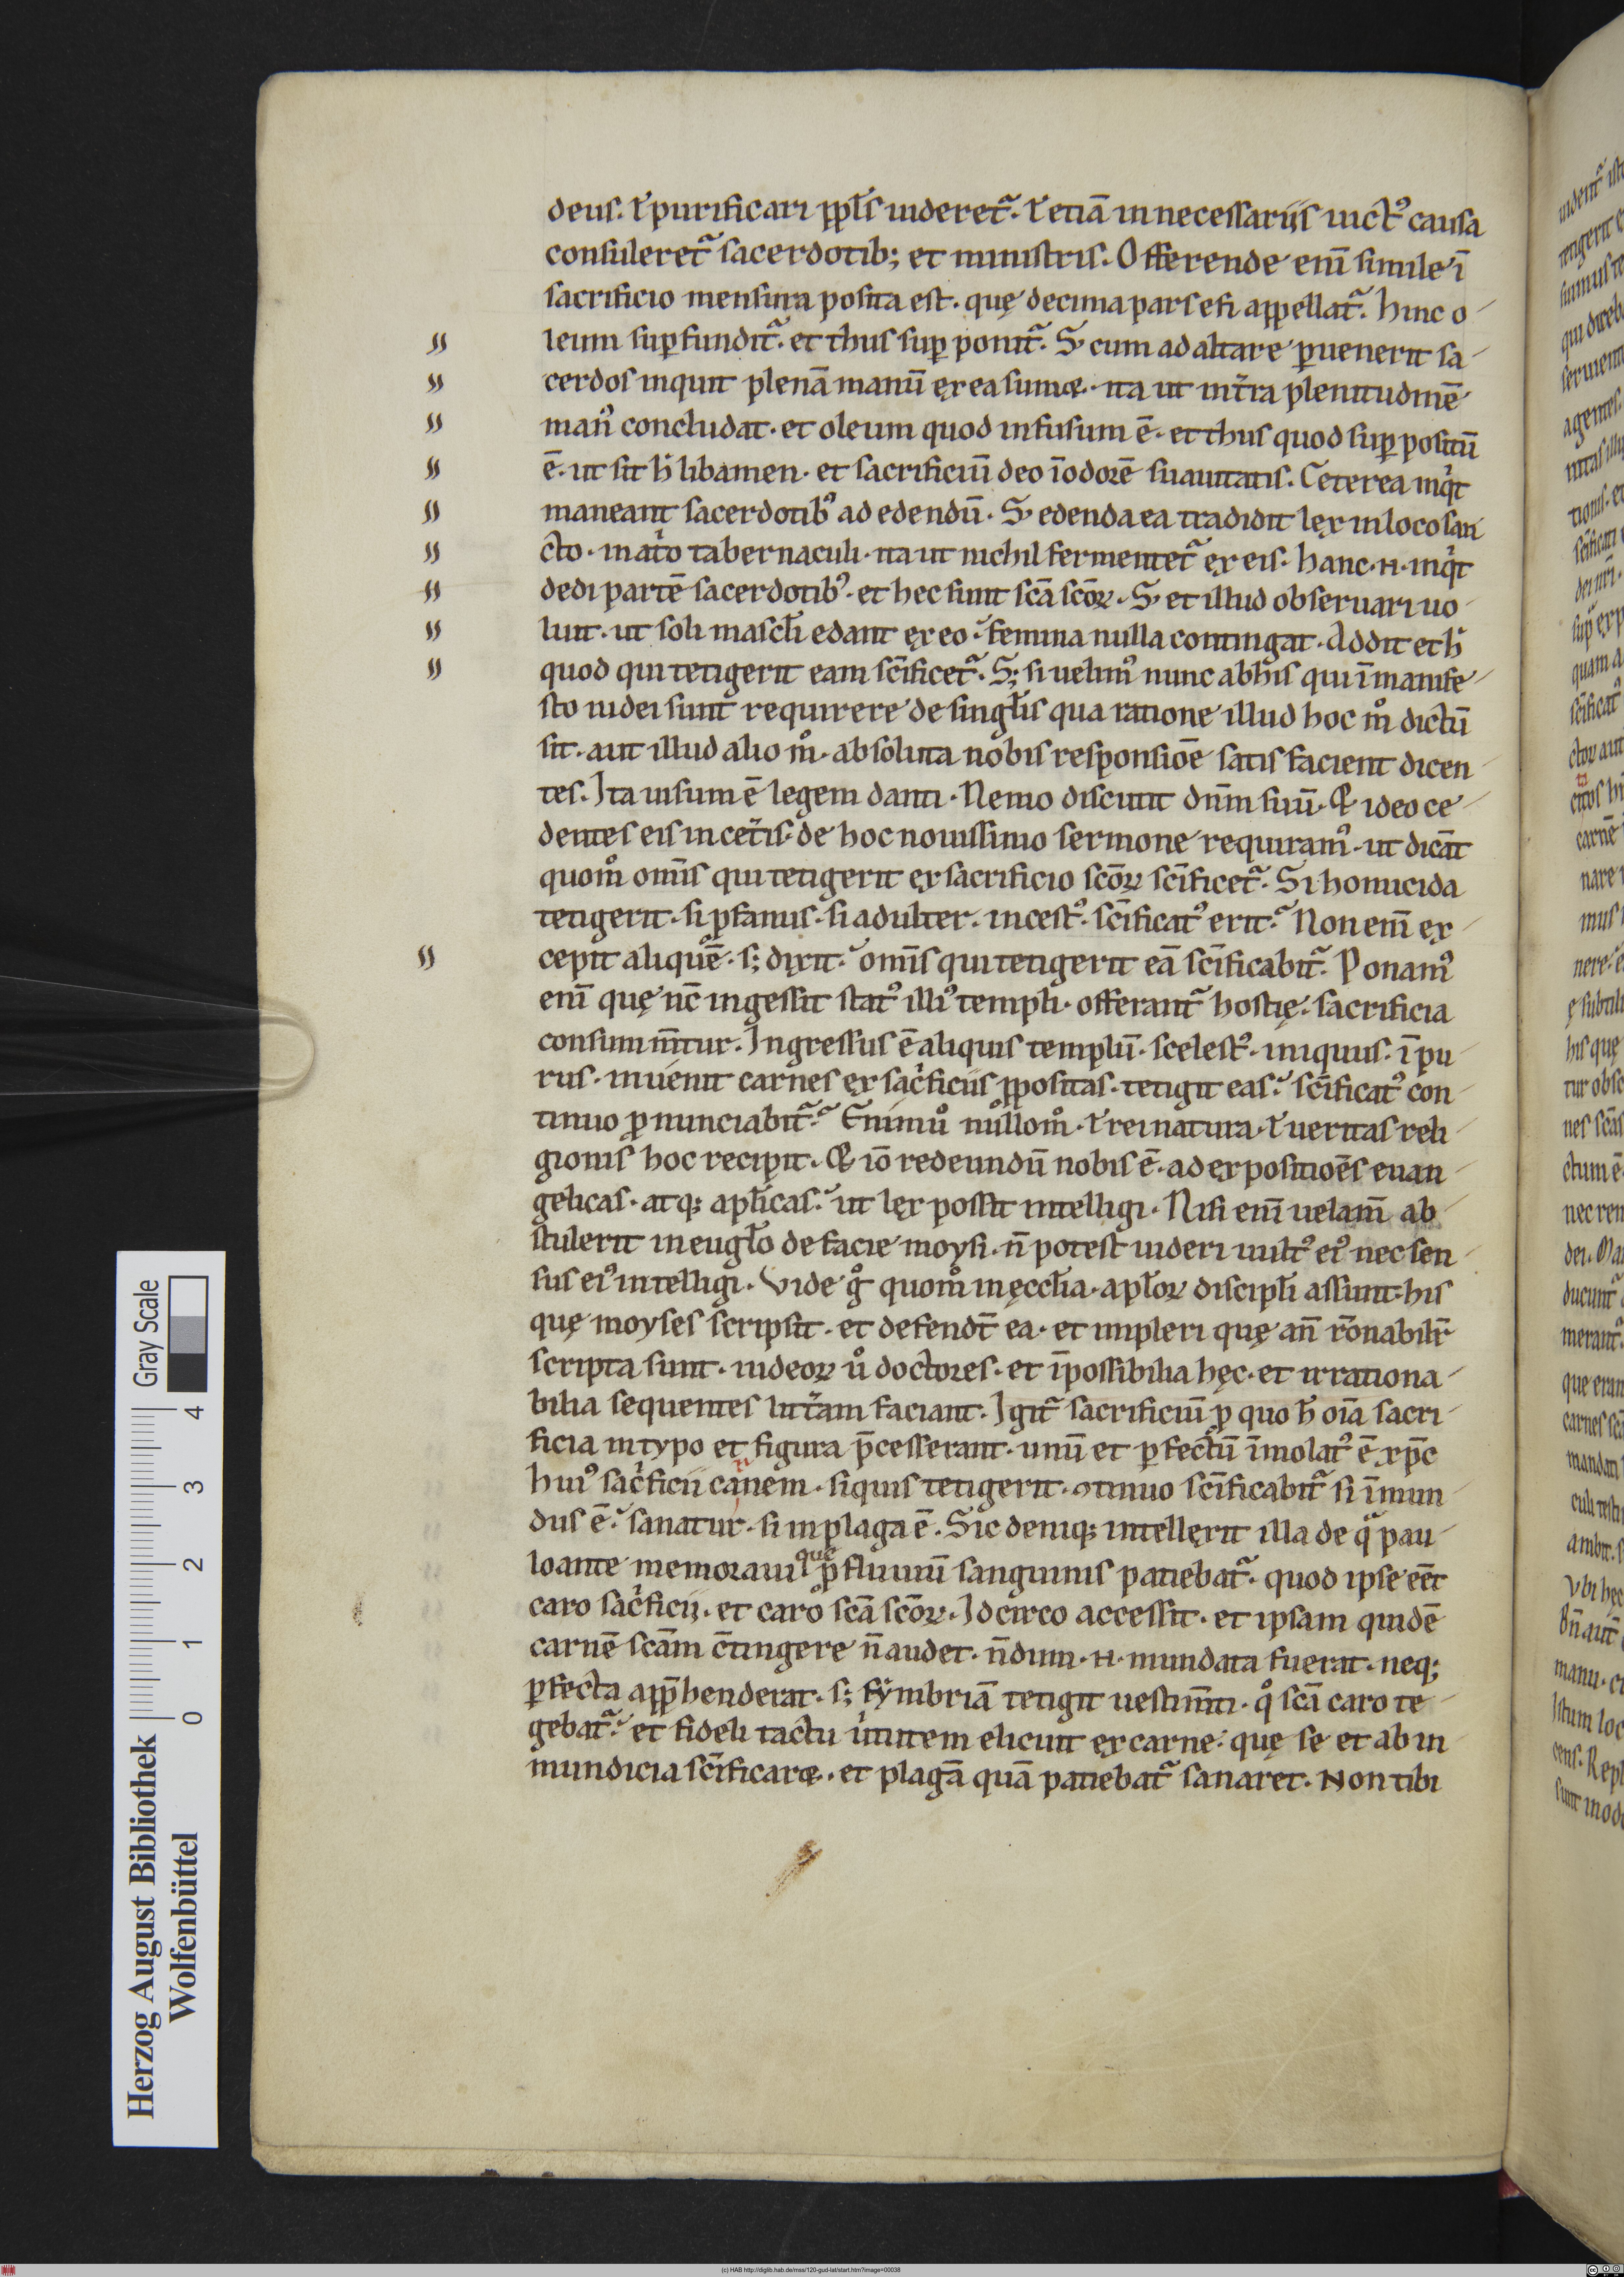 deus. ł purificari ppłs uideret᷑. ł etiā in necessariis uict᷒ causa
consuleret᷑ sacerdotib; et ministris. Offerende enī simile ī
sacrificio mensura posita est. quę decima pars efi appellat᷑. hinc o
leum suꝑfundit᷑. et thus suꝑ ponit᷑. S; cum ad altare ꝑuenerit sa
cerdos inquit plenā manū ex ea sumæ. ita ut int̄ra plenitudinē
man᷒ concludat. et oleum quod infusum ē. et thus quod suꝑ positū
ē. ut sit h̄ libamen. et sacrificiū deo ī odorē suauitatis. Ceterea inq̇t
maneant sacerdotib᷒ ad edendū. S; edenda ea tradidit lex in loco san
cto. in at̓o tabernaculi. ita ut nichil fermentet᷑ ex eis. hanc .n. inq̇t
dedi partē sacerdotib᷒. et hec sunt scā scōꝝ. S; et illud obseruari uo
luit. ut soli mascłi edant ex eo. femina nulla contingat. Addit et h̄
quod qui tetigerit eam scīficet᷑. S; si uelim᷒ nunc ab his qui ī manife
sto iudei sunt requirere de singłis qua ratione illud hoc m̊ dictū
sit. aut illud alio m̊. absoluta nobis responsiōe satis facient dicen
tes. Ita uisum ē legem danti. Nemo discutit dn̄m suū. & ideo ce
dentes eis in cet̄is. de hoc nouissimo sermone requiram᷒. ut dicāt
quom̊ om̄is qui tetigerit ex sacrificio scōꝝ scīficet᷑. Si homicida
tetigerit. si ꝓfanus. si adulter. incest᷒. scīficat᷒ erit. Non enī ex
cepit aliquē. s; dixit. om̄is qui tetigerit eā scīficabit᷑. Ponam᷒
enī quę nc̄ ingessit stat᷒ illi᷒ templi. offerant᷑ hostię. sacrificia
consummn̄tur. Ingressus ē aliquis templū. scelest᷒. iniquus. īpu
rus. inuenit carnes ex sac̓ficiis ꝓpositas. tetigit eas. scīficat᷒ con
tinuo ꝓnunciabit᷑. Enimů nullom̊. ł rei natura. ł ueritas reli
gionis hoc recipit. & iō redeundū nobis ē. ad expositiōes euan
gelicas. atq; apłicas. ut lex possit intelligi. Nisi enī uelam̄ ab
stulerit in eugło de facie moysi. n̄ potest uideri uult᷒ ei᷒ nec sen
sus ei᷒ intelligi. Vide g̊ quom̊ in ęccłia. apłoꝝ discipłi assunt his
quę moyses scripsit. et defendt̄ ea. et impleri quę an̄ rōnabilr̄
scripta sunt. iudeoꝝ ů doctores. et īpossibilia hęc. et irrationa
bilia sequentes litt̄am faciant. Igit᷑ sacrificiū ꝓ quo h̄ oīa sacri
ficia in typo et figura p̄cesserant. unū et ꝑfectū īmolat᷒ ē xp̄c
hui᷒ sac̓ficii canem. siquis tetigerit. ꝯtinuo scīficabit᷑ si īmun
dus ē. sanatur. si in plaga ē. Sic deniq; intellexit illa de q̄ pau
lo ante memoraui que ꝓfluuiū sanguinis patiebat᷑. quod ipse eēt
caro sac̓ficii. et caro scā scōꝝ. Idcirco accessit. et ipsam quidē
carnē scām c̄tingere n̄ audet. n̄dum .n. mundata fuerat. neq;
ꝑfecta app̄henderat. s; fymbriā tetigit uestim̄ti. q̊ scā caro te
gebat᷑. et fideli tactu ůtutem elicuit ex carne. quę se et ab in
mundicia scīficaræ. et plagā quā patiebat᷑ sanaret. Non tibi
Herzog August Bibliothek
Wolfenbüttel
0 1 2 3 4
Gray Scale
(c) HAB http://diglib.hab.de/mss/120-gud-lat/start.htm?image=00038